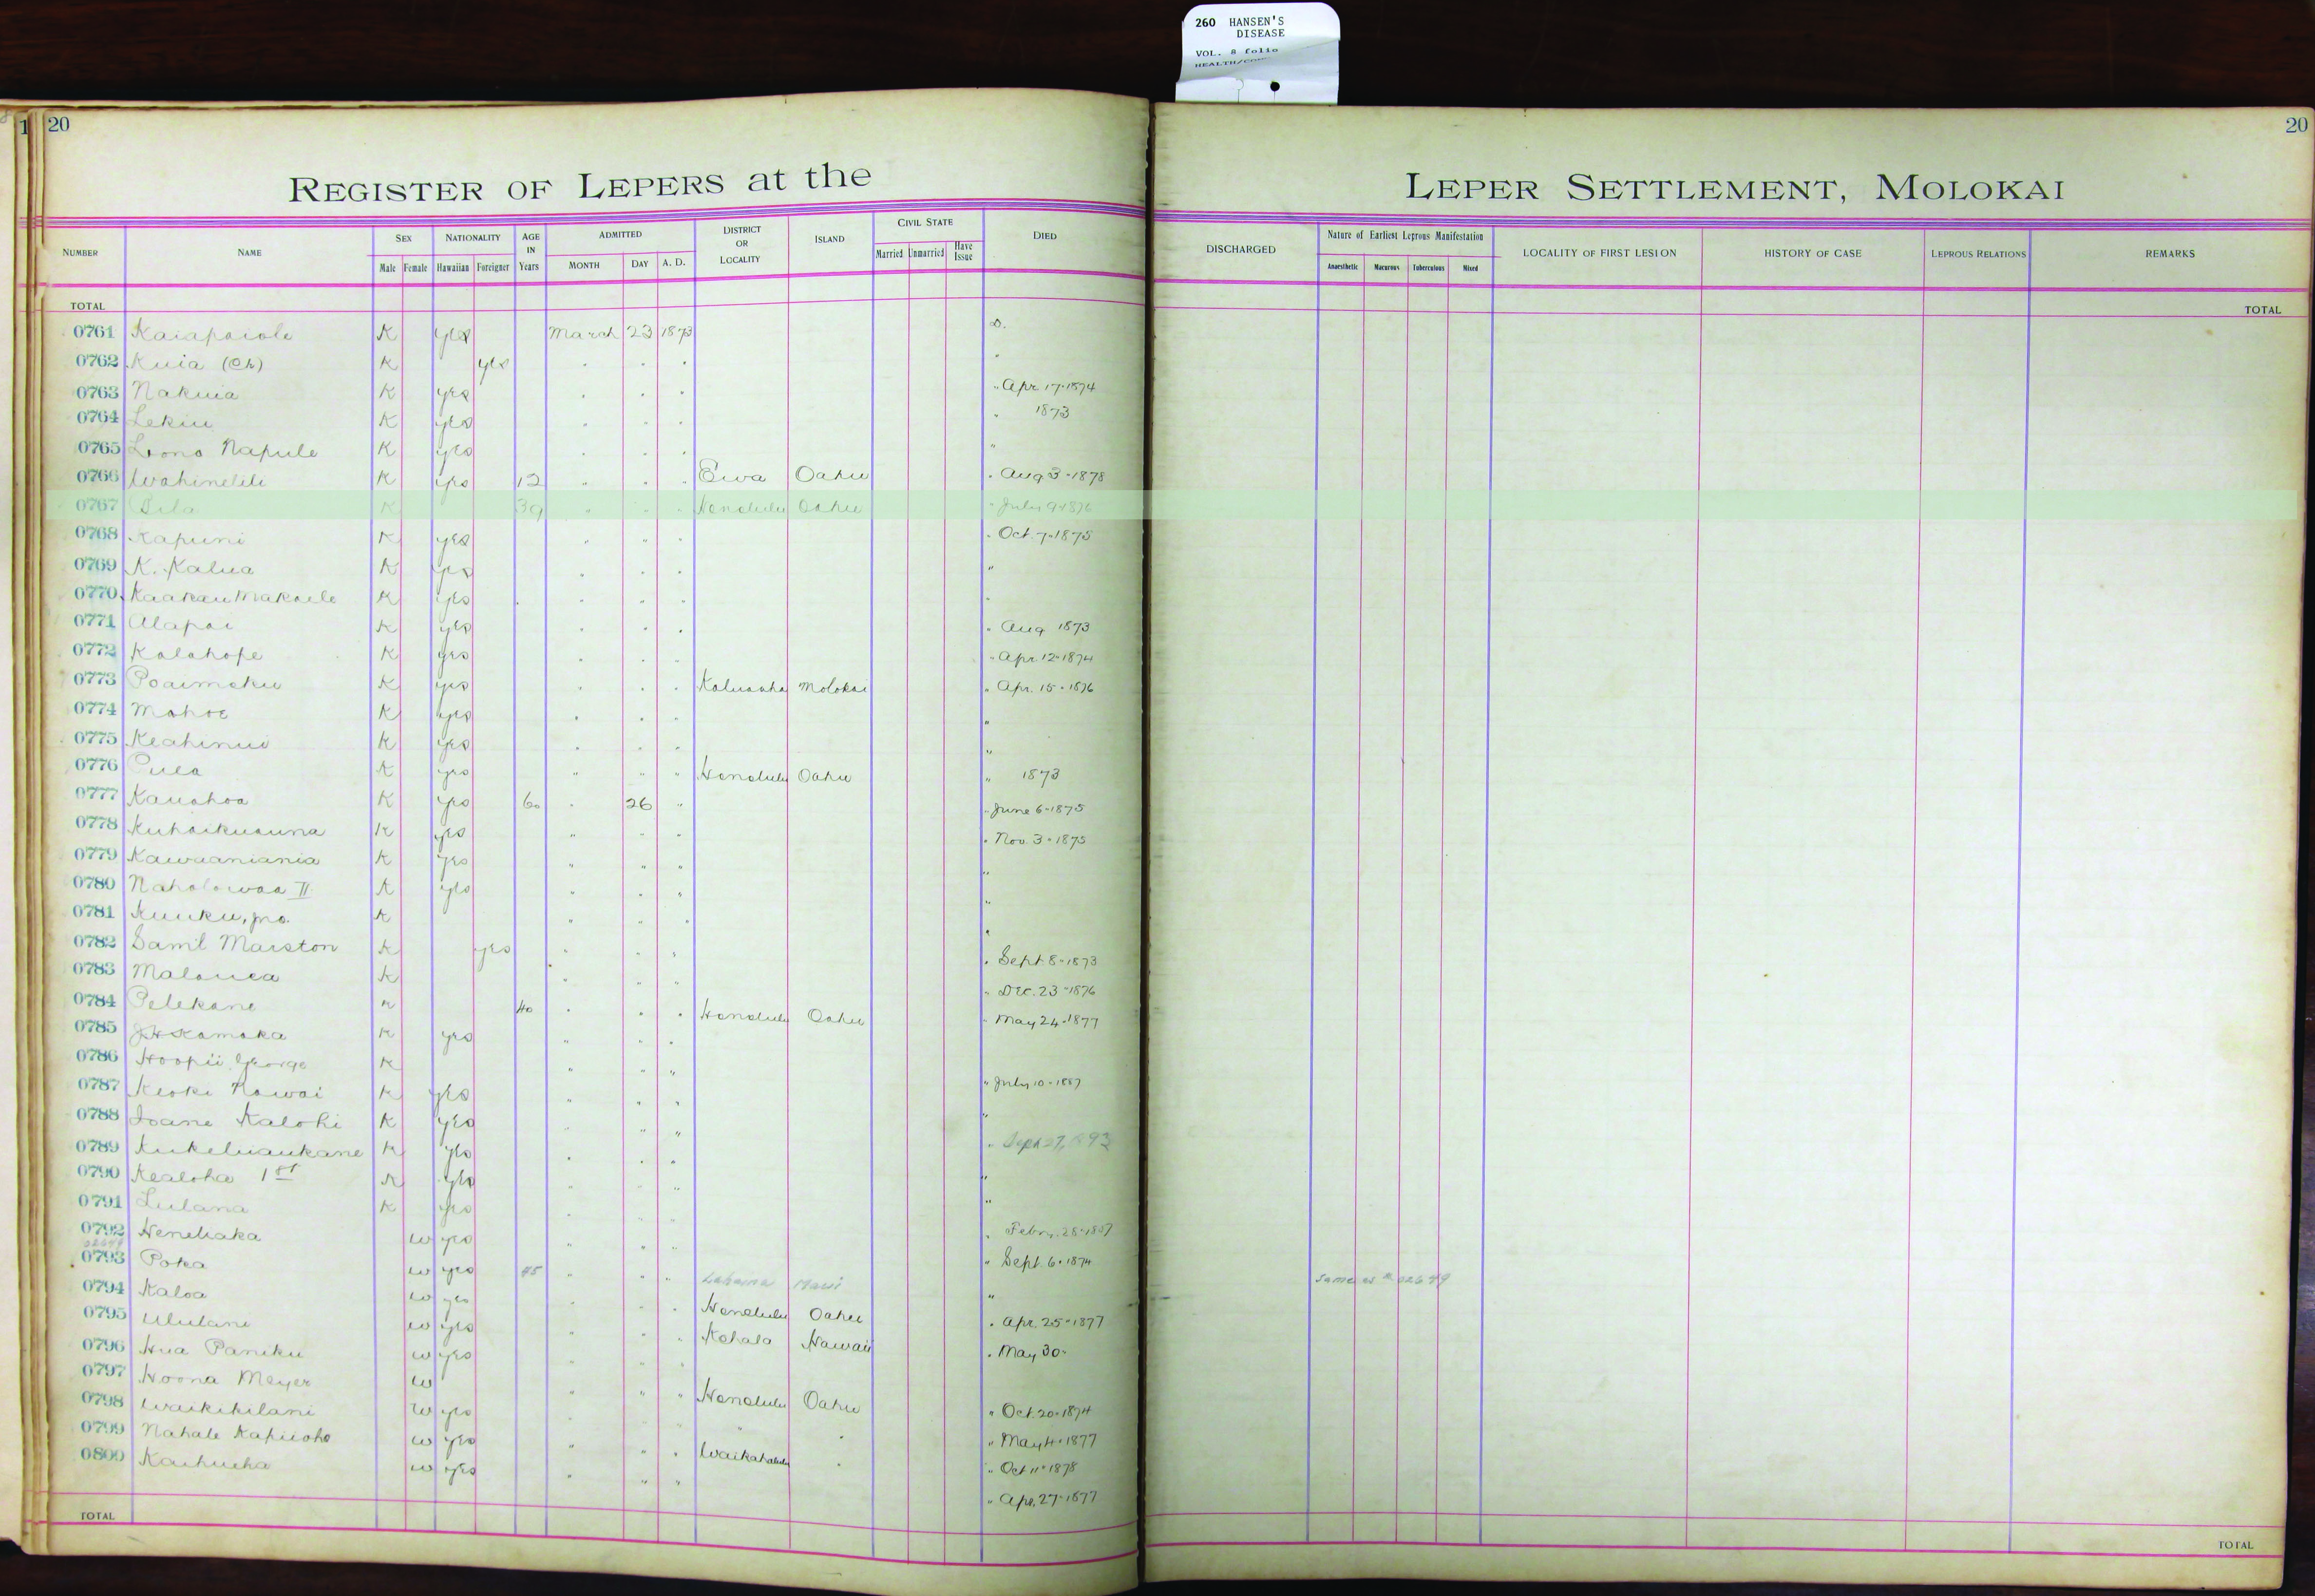 260 HANSEN'S
DISEASE
VOL. 8 folio
20
20
REGISTER OF LEPERS at the LEPER SETTLEMENT, MOLOKAI
NUMBER NAME SEX Male Female NATIONALITY Hawaiian Foreigner AGE IN Years ADMITTED MONTH DAY A. D. DISTRICT OR LOCALITY ISLAND CIVIL STATE Married Unmarried Have Issue DIED DISCHARGED Nature of Earliest Leprous Manifestation Anaesthetic Macurous Tuberculous Mixed LOCALITY OF FIRST LESION HISTORY OF CASE LEPROUS RELATIONS REMARKS
TOTAL TOTAL
0761 Kaiapaiole K yes March 23 1873 D.
0762 Kuia (Ch) K yes " " " "
0763 Nakuia K yes " " " " Apr. 17-1874
0764 Lekiu K yes " " " " 1873
0765 Lono Napule K yes " " " "
0766 Wahinelili K yes 12 " " " Ewa Oahu " Aug 3-1878
0767 Sila K 39 " " " Honolulu Oahu " July 9-1876
0768 Kapuni K yes " " " " Oct. 7-1875
0769 K. Kalua K yes " " " "
0770 Kaakau Makaele K yes " " " "
0771 Alapai K yes " " " " Aug 1873
0772 Kalahope K yes " " " " Apr. 12-1874
0773 Poaimoku K yes " " " Kaluaaha Molokai " Apr. 15-1876
0774 Mahoe K yes " " " "
0775 Keahinui K yes " " " "
0776 Pula K yes " " " Honolulu Oahu " 1873
0777 Kauahoa K yes 60 " 26 " " June 6-1875
0778 Kuhaikuauna K yes " " " " Nov. 3-1875
0779 Kawaaniania K yes " " " "
0780 Naholowaa II K yes " " " "
0781 Kuuku, jno. K " " " "
0782 Saml Marston K yes " " " " Sept 8-1873
0783 Malouea K " " " " Dec. 23-1876
0784 Pelekane K 40 " " " Honolulu Oahu " May 24-1877
0785 J.H. Kamaka K yes " " "
0786 Hoopii George K " " " " July 10-1887
0787 Keoki Nawai K yes " " " "
0788 Ioane Kalohi K yes " " " " Sept 27,
0789 Kukeliaukane K yes " " " "
0790 Kealoha 1st K yes " " " "
0791 Lulana K yes " " " " Febr. 28-
0792 Heneliaka W yes " " " " Sept. 6-1874
02649
0793 Poka W yes 45 " " " Lahaina Maui " Same as # 02649
0794 Kaloa W yes " " " Honolulu Oahu " Apr. 25-1877
0795 Ululani W yes " " " Kohala Hawaii " May 30-
0796 Hua Paniku W yes " " "
0797 Hoona Meyer W " " " Honolulu Oahu " Oct. 20-1874
0798 Waikikilani W yes " " " " " " May 4-1877
0799 Nahale Kapiioho W yes " " " Waikahalulu " " Oct 11-1878
0800 Kaihueha W yes " " " " Apr. 27-1877
TOTAL TOTAL